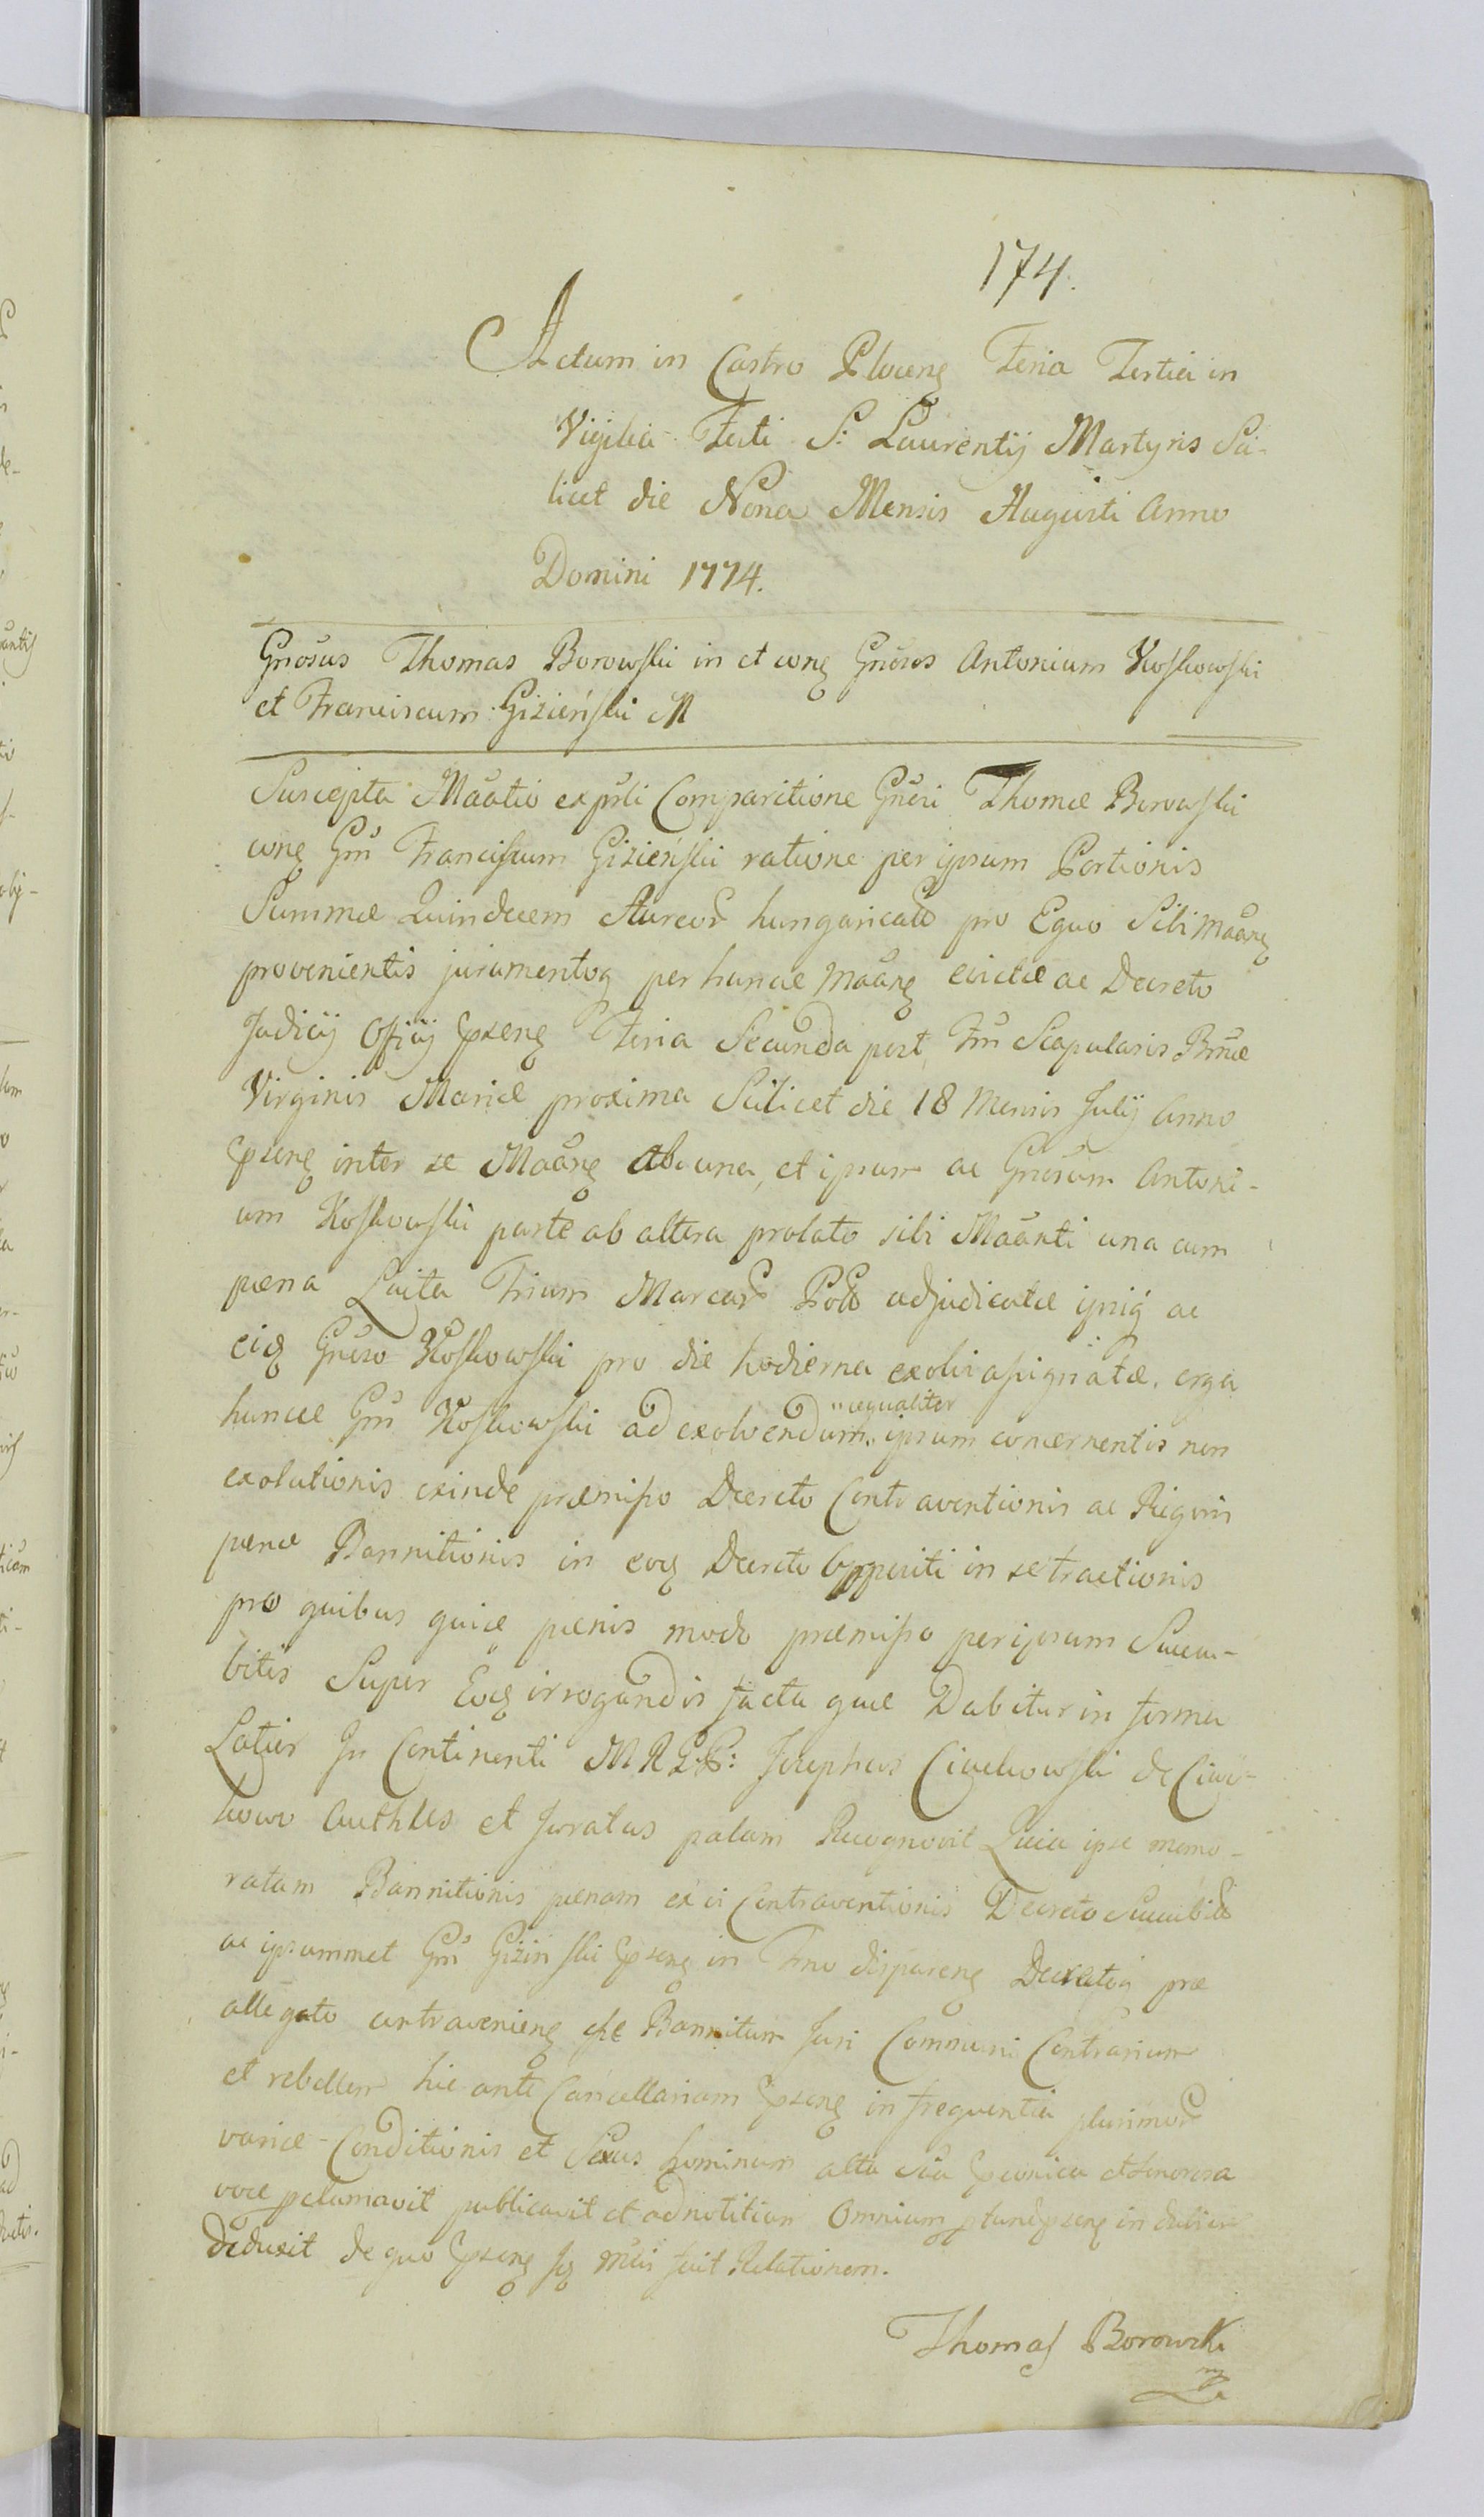 174.
Actum in Castro Plocens Feria Tertia in
Vigilia Festi S: Laurentij Martyris Sci-
licet die Nona Mensis Augusti Anno
Domini 1774.
Gnosus Thomas Borowski in et cons Gnosos Antonium Koskowski
et Franciscum Gizieński M
Suscepta Maatio expsti Comparitione Gnosi Thomæ Borowski
cons Gm Franciscum Giziński ratione per ipsum Portionis
Summæ Quindecem Aureor hungarical pro Equo Sibi Maans
provenientis juramentoq per huncæ Maans evictæ ac Decreto
Judicij Officij Ppsens Feria Secunda post Fm Scapularis Bmæ
Virginis Mariæ proxima Scilicet die 18 Mensis Julij Anno
Ppsens inter se Maans ab una, et ipsum ac Gnosum Antoni-
um Koskowski parte ab altera prolato sibi Maanti una cum
pæna Luita Trium Marcar Pol adjudicatæ ipsiq ac
eid Gnoso Koskowski pro die hodierna exolvi assignatæ, erga
huncæ Gm Koskowski ad exolvendum "æqualiter ipsum concernentis non
exolutionis exinde præmisso Decreto Contraventionis ac Rigoris
pænæ Bannitionis in eod Decreto Appositi in se tractionis
pro quibus quia pænis modo præmisso per ipsum Succu-
bitis Super Eod irrogandis facta quæ Dabitur in forma
Latior In Continenti MRGP: Josephus Ciachowski de Ciac-
howo Authtus et Juratus palam Recognovit Quia ipse memo-
ratam Bannitionis pænam ex vi Contraventionis Decreto Succubit
ac ipsummet Gm Giziński Ppsens in Tmo disparens Decretoq præ
allegato contraveniens esse Bannitum Juri Communi Contrarium
et rebellem hic ante Cancellariam Ppsens in frequentia plurimor
variæ Conditionis et Sexus hominum alta sua Ppconica et Sonorosa
voce pclamavit publicavit et ad notitiam Omnium
deduxit de quo Ppsens Jq mihi fecit Relationem.
Thomas Borowski
mp